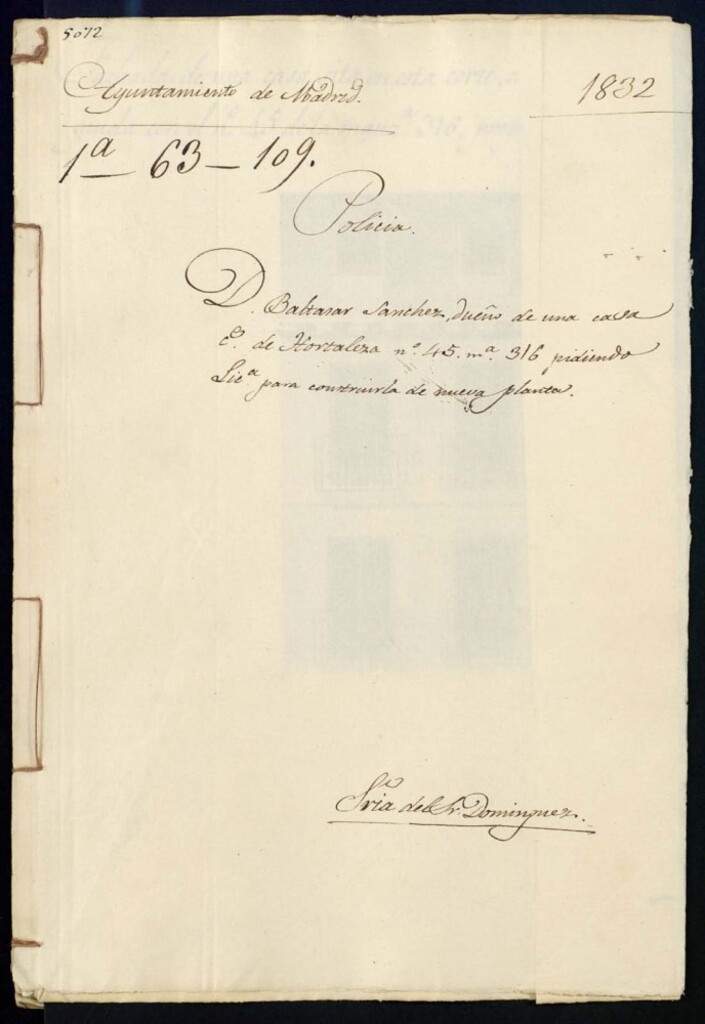 5072
Ayuntamiento de Madrid.
1832
1ª – 63 – 109.
Policia.
D. Baltasar Sanchez, dueño de una casa
Cº. de Hortaleza nº. 45. mª. 316 pidiendo
Licª para construirla de nueva planta.
Sría del Sr. Dominguez.